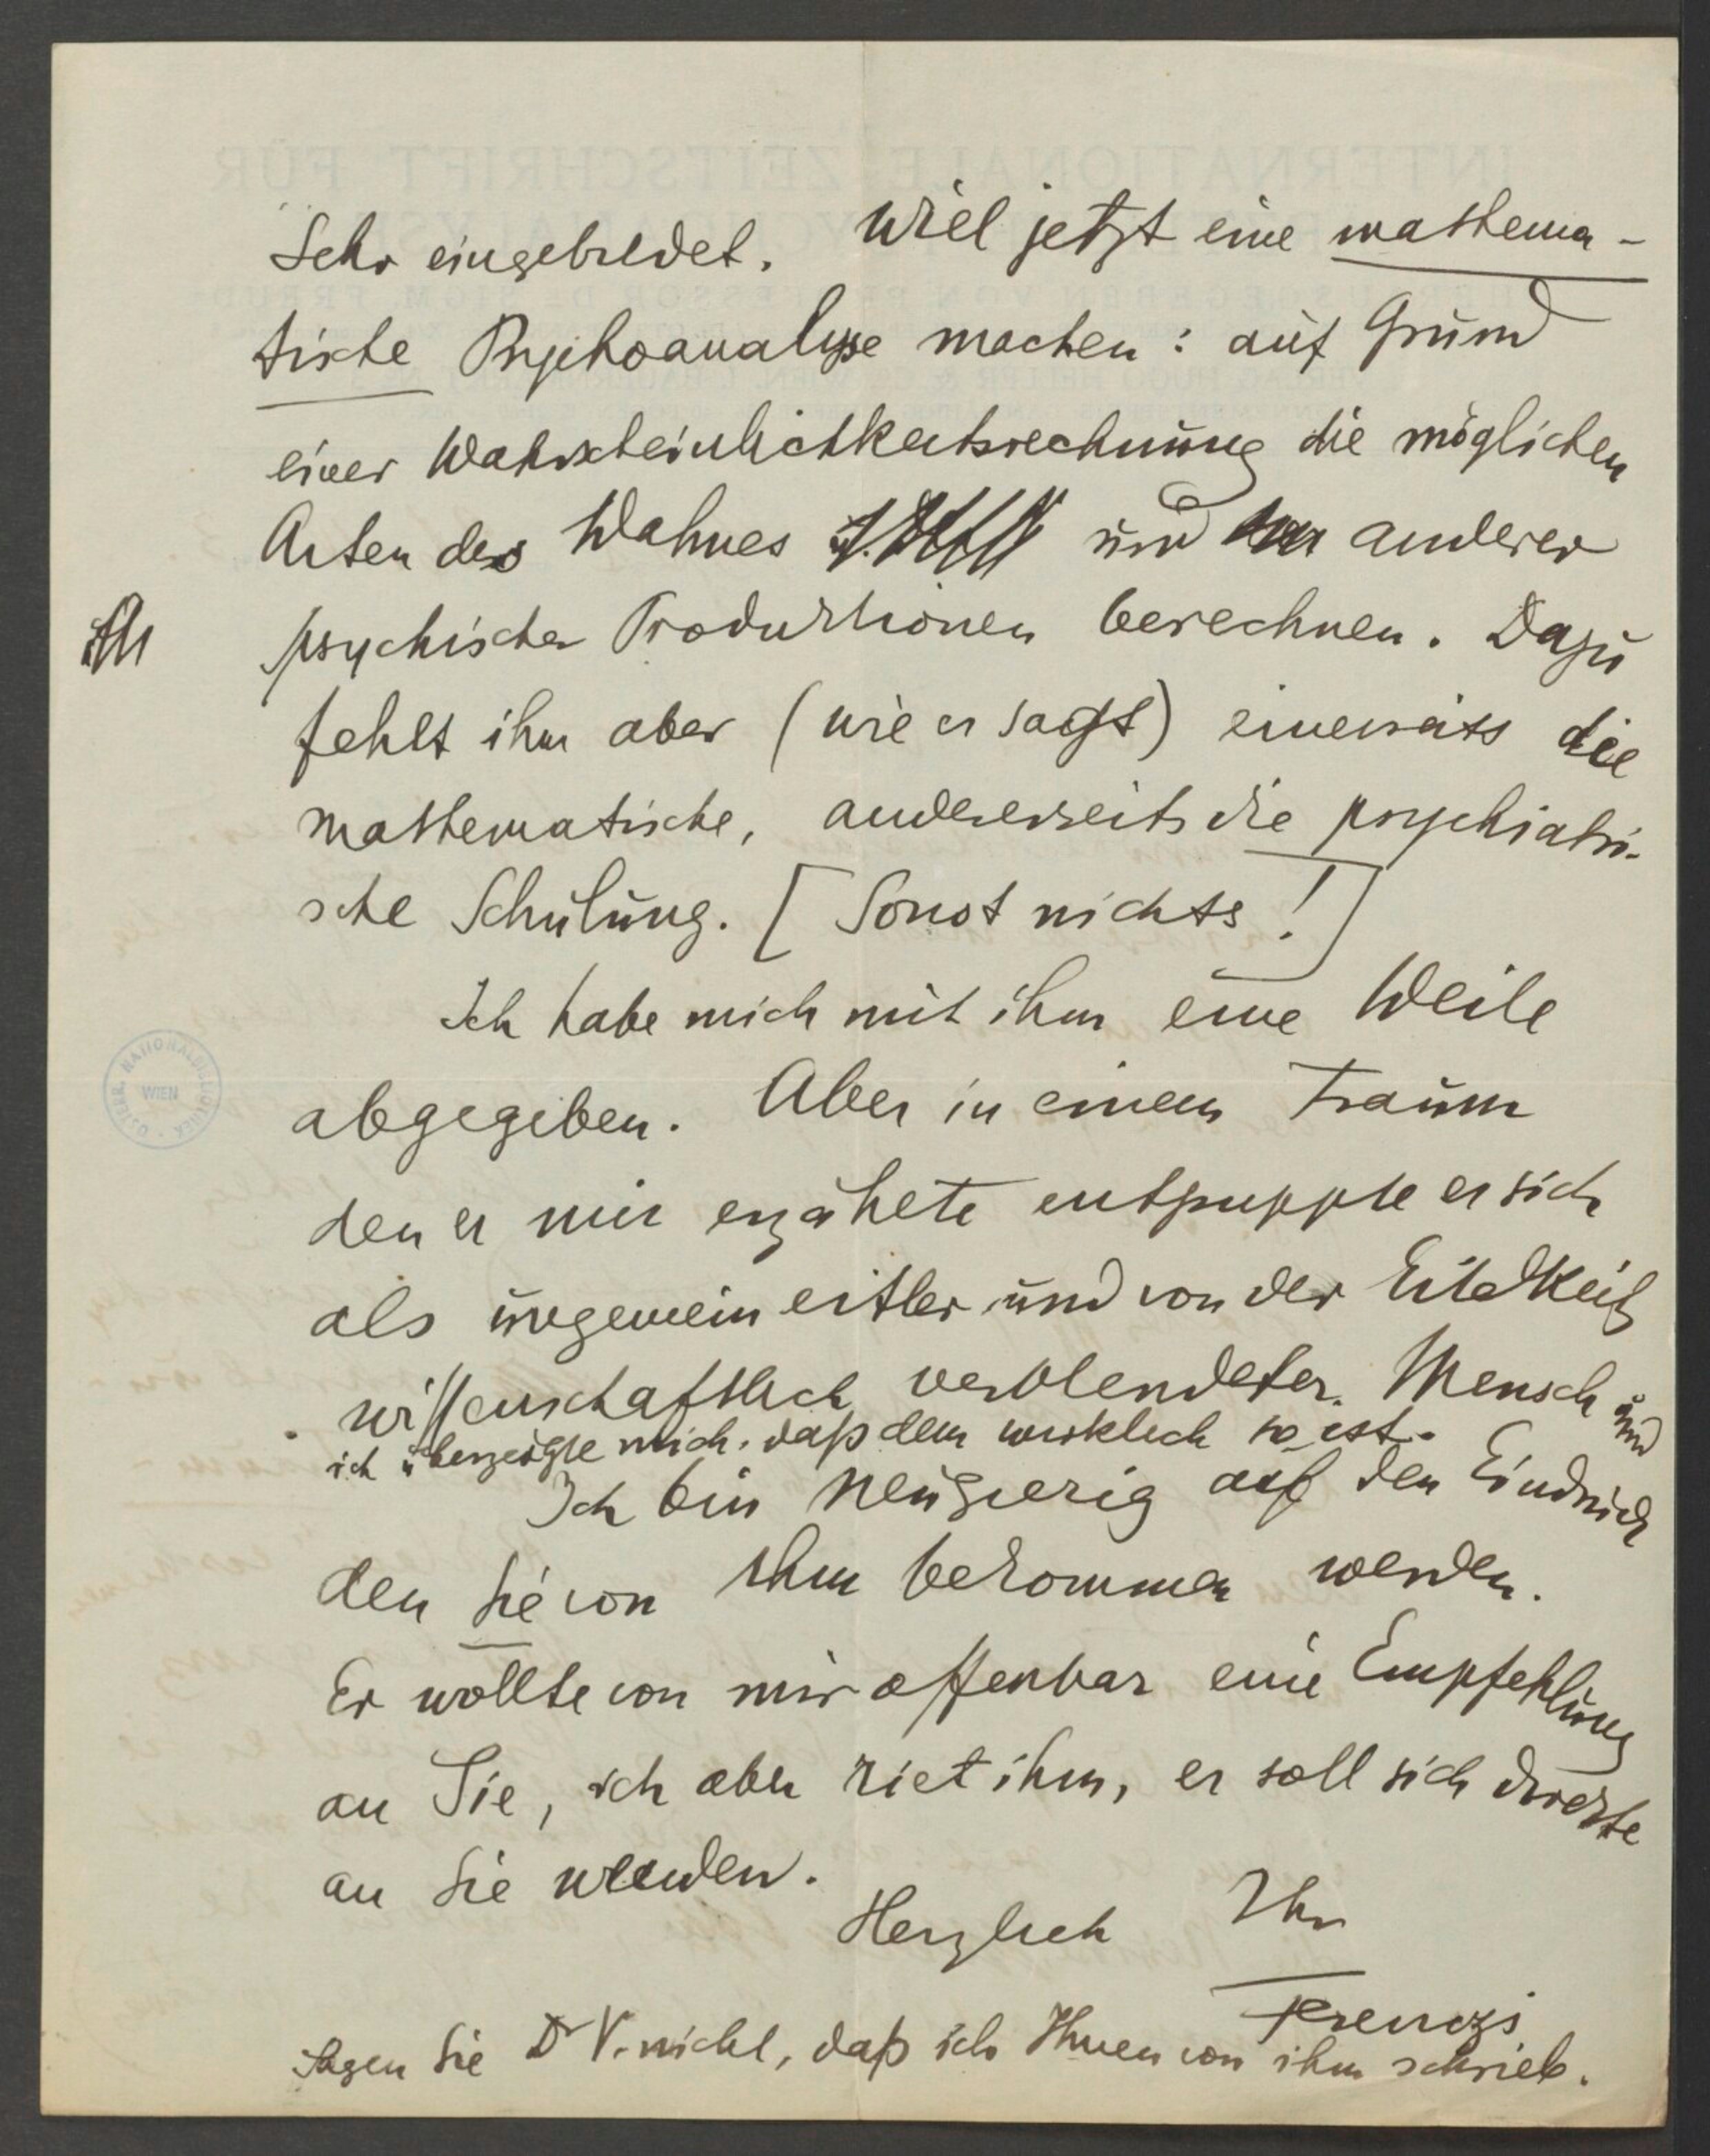 Sehr eingebildet. Will jetzt eine mathema-
tische Psychoanalyse machen: auf Grund
einer Wahrscheinlichkeitsrechnung die möglichen
Arten des Wahnes und anderer
psychischer Produktionen berechnen. Dazu
fehlt ihm aber (wie er sagt) einerseits die
mathematische, andererseits die psychiatri-
sche Schulung. [Sonst nichts!]
Ich habe mich mit ihm eine Weile
abgegeben. Aber in einem Traum
den er mir erzählte entpuppte er sich
als ungemein eitler und von der Eitelkeit
wissenschaftlich verblendeter Mensch und
ich überzeugte mich, daß dem wirklich so ist.
Ich bin neugierig auf den Eindruck
den Sie von ihm bekommen werden.
Er wollte von mir offenbar eine Empfehlung
an Sie, ich aber riet ihm, er soll sich direkte
an Sie wenden.
Herzlich Ihr
Ferenczi
Sagen Sie Dr V. nicht, daß ich Ihnen von ihm schrieb.
ÖSTERR. NATIONALBIBLIOTHEK
WIEN